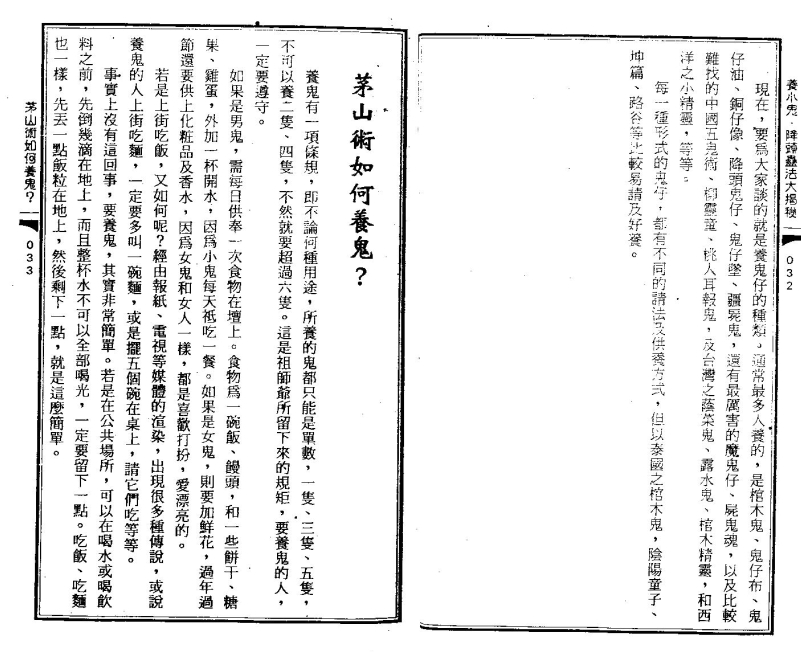 養小鬼、降頭蠱法大揭秘
032
現在，要為大家談的就是養鬼仔的種類。通常最多人養的，是棺木鬼、鬼仔布、鬼
仔油、銅仔像、降頭鬼仔、鬼仔墜、疆屍鬼，還有最厲害的魔鬼仔、屍鬼魂，以及比較
難找的中國五鬼術、柳靈童、桃人耳報鬼，及台灣之蔭菜鬼、露水鬼、棺木精靈，和西
洋之小精靈，等等。
每一種形式的鬼仔，都有不同的請法及供養方式，但以泰國之棺木鬼，陰陽童子、
坤篇、路谷等比較易請及好養。
茅山術如何養鬼？
養鬼有一項條規，即不論何種用途，所養的鬼都只能是單數，一隻、三隻、五隻，
不可以養二隻、四隻，不然就要超過六隻。這是祖師爺所留下來的規矩，要養鬼的人，
一定要遵守。
如果是男鬼，需每日供奉一次食物在壇上。食物爲一碗飯、饅頭，和一些餅干、糖
果、雞蛋，外加一杯開水，因爲小鬼每天祗吃一餐。如果是女鬼，則要加鮮花，過年過
節還要供上化粧品及香水，因爲女鬼和女人一樣，都是喜歡打扮，愛漂亮的。
若是上街吃飯，又如何呢？經由報紙、電視等媒體的渲染，出現很多種傳說，或說
養鬼的人上街吃麵，一定要多叫一碗麵，或是擺五個碗在桌上，請它們吃等等。
事實上沒有這回事，要養鬼，其實非常簡單。若是在公共場所，可以在喝水或喝飲
料之前，先倒幾滴在地上，而且整杯水不可以全部喝光，一定要留下一點。吃飯、吃麵
也一樣，先丟一點飯粒在地上，然後剩下一點，就是這麼簡單。
茅山術如何養鬼？
033